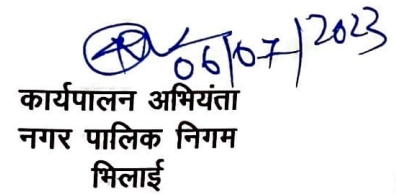 06/07/2023
कार्यपालन अभियंता
नगर पालिक निगम
भिलाई